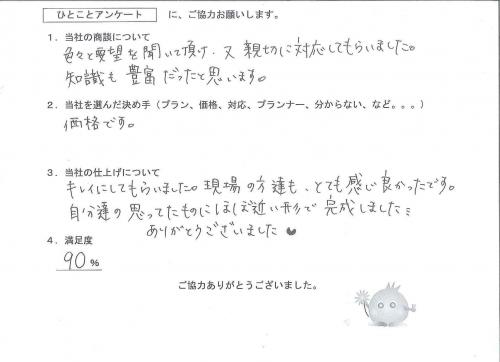 ひとことアンケート に、ご協力お願いします。
1．当社の商談について
色々と要望を聞いて頂け、又 親切に対応してもらいました。
知識も豊富だったと思います。
2．当社を選んだ決め手（プラン、価格、対応、プランナー、分からない、など。。。）
価格です。
3．当社の仕上げについて
キレイにしてもらいました。現場の方達も、とても感じ良かったです。
自分達の思ってたものにほぼ近い形で完成しました
ありがとうございました♥
4．満足度
90％
ご協力ありがとうございました。